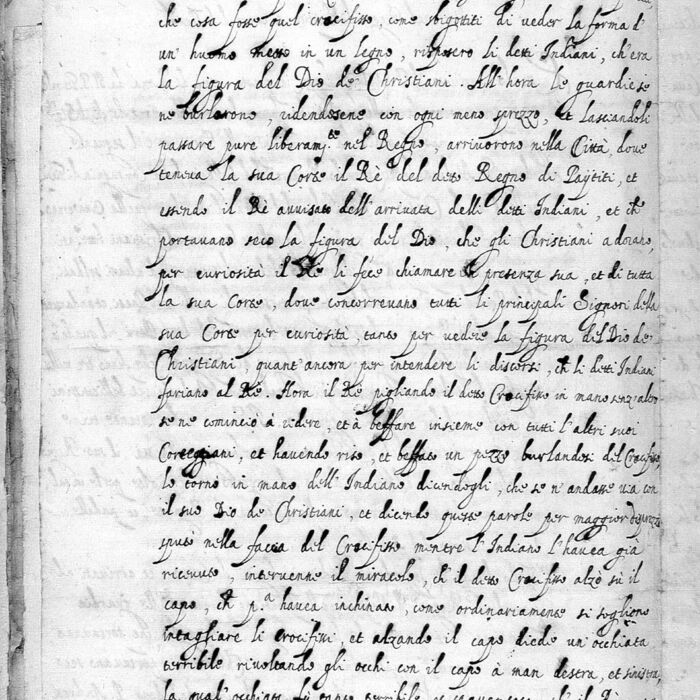 che cosa fosse quel crocifisso, come sbigottiti di veder la forma d'
un' huomo messo in un legno, risposero li detti Indiani, ch'era
la figura del Dio de Christiani. All'hora le guardie se
ne burlorono, ridendosene con ogni meno sprezzo, et lasciandoli
passare pure liberam.te nel Regno, arrivorono nella Città, dove
teneva la sua Corte il Rè del detto Regno di Paytiti, et
essendo il Rè avvisato dell'arrivata delli detti Indiani, et ch
portavano seco la figura del Dio, che gli Christiani adorano,
per curiosità il Rè li fece chiamare in presenza sua, et di tutta
la sua Corte, dove concorrevano tutti li principali Signori della
sua Corte per curiosità, tanto per vedere la figura del Dio de
Christiani, quant'ancora per intendere li discorsi, ch li detti Indiani
fariano al Rè. Hora il Rè pigliando il detto Crocifisso in mano senz'altro
se ne cominciò à ridere, et à beffare insieme con tutti l'altri suoi
Corteggiani, et havendo riso, et beffato un pezzo burlandosi del Crocifisso,
lo tornò in mano dell'Indiano dicendogli, che se n'andasse via con
il suo Dio de Christiani, et dicendo queste parole per maggior disprezzo
sputò nella faccia del Crocifisso mentre l'Indiano l'havea già
ricevuto, intervenne il miracolo, ch'il detto Crocifisso alzò sù il
capo, ch p.a havea inchinato, come ordinariamente si sogliono
intagliare li crocifissi, et alzando il capo diede un'occhiata
terribile rivoltando gli occhi con il capo à man destra, et sinistra,
la qual'occhiata fù tanto terribile, et